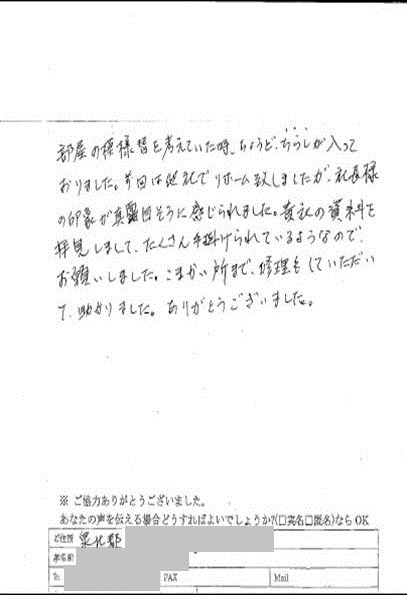 部屋の模様替を考えていた時、ちょうど、ちらしが入って
おりました。前回は他社でリホーム致しましたが、社長様
の印象が真面目そうに感じられました。貴社の資料を
拝見しまして、たくさん手掛けられているようなので、
お願いしました。こまかい所まで、修理をしていただい
て、助かりました。ありがとうございました。
※ ご協力ありがとうございました。
あなたの声を伝える場合どうすればよいでしょうか?(□実名□匿名)ならOK
ご住所
お名前
Tel FAX Mail